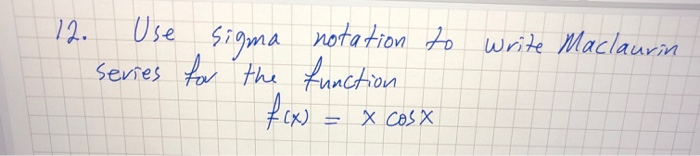 12. Use sigma notation to write Maclaurin
series for the function
f(x) = x cosx